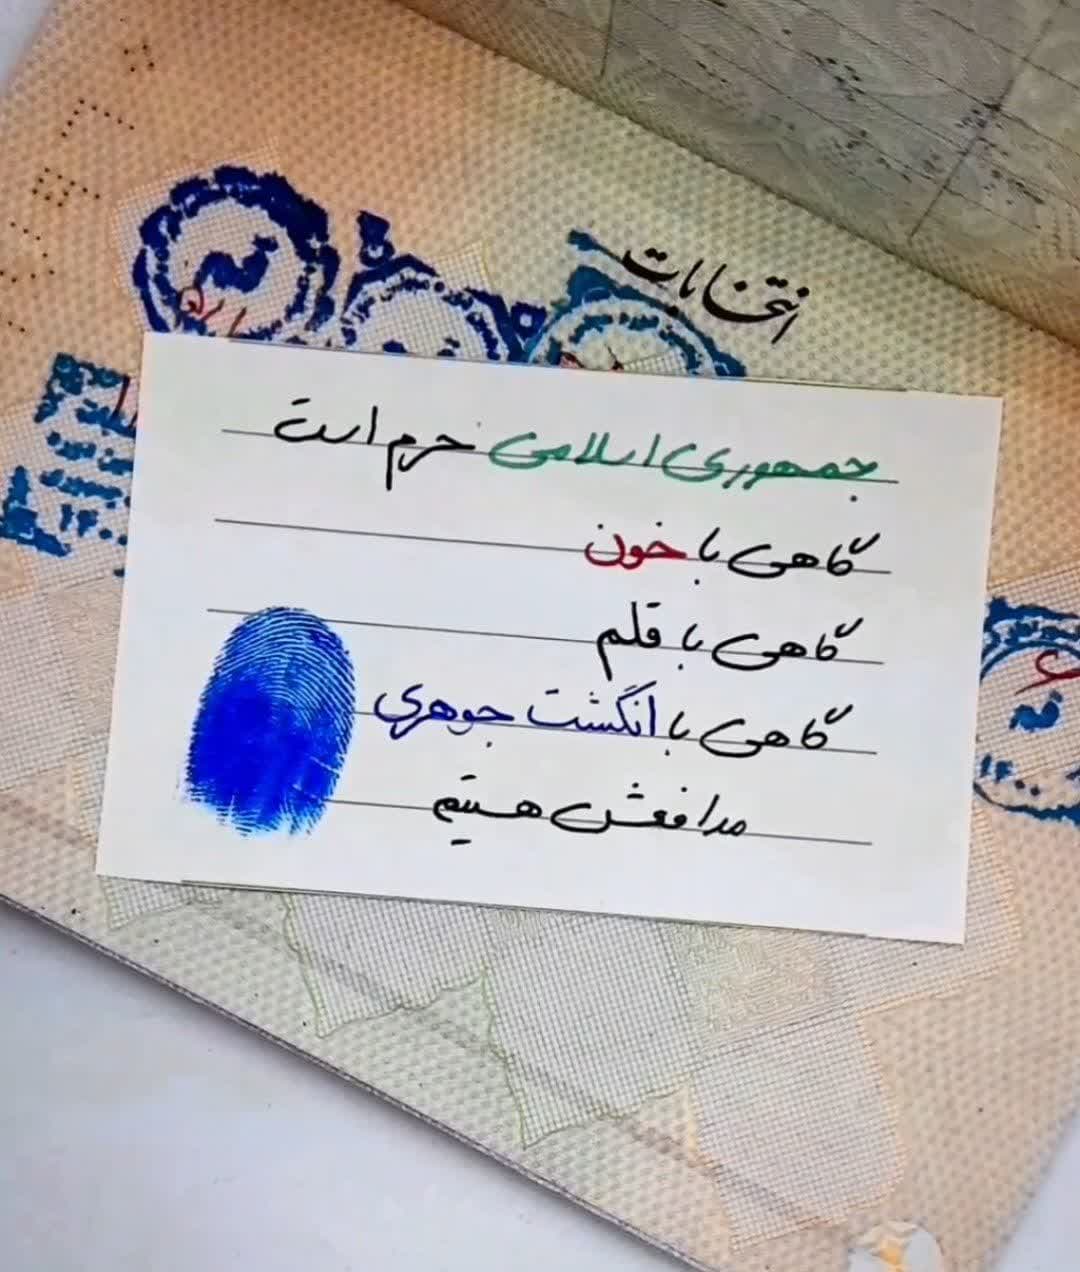 انتخابات
جمهوری اسلامی حرم است
گاهی با خون
گاهی با قلم
گاهی با انگشت جوهری
مدافعش هستیم
۱۴۰۰